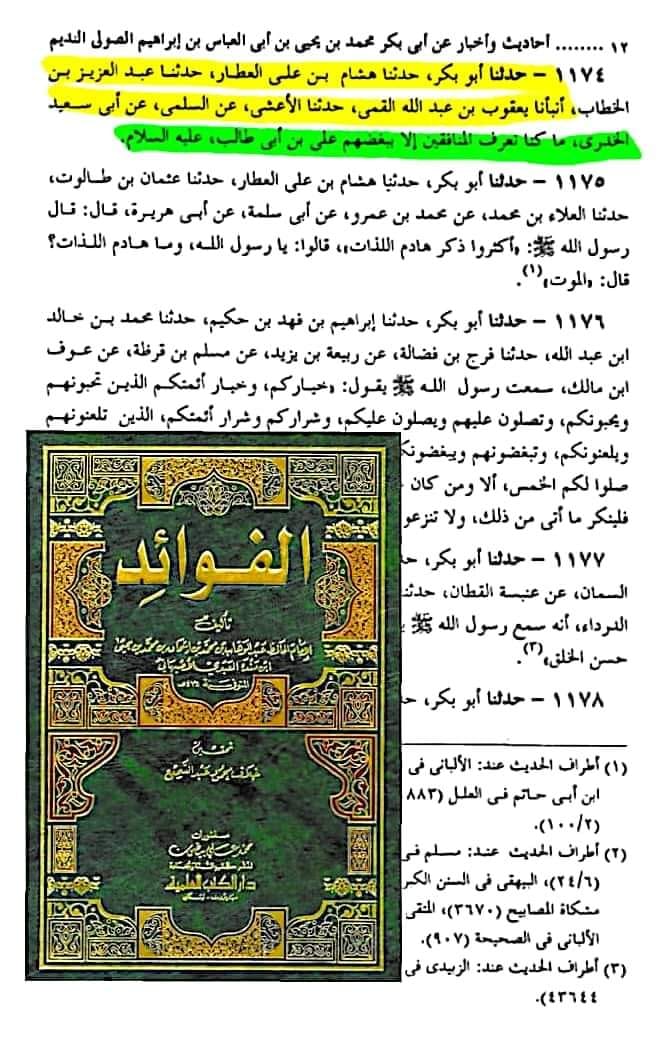 ١٢ ........ أحاديث وأخبار عن أبى بكر محمد بن يحيى بن أبى العباس بن إبراهيم الصولى النديم
١١٧٤ – حدثنا أبو بكر، حدثنا هشام بن على العطار، حدثنا عبد العزيز بن
الخطاب، أنبأنا يعقوب بن عبد الله القمى، حدثنا الأعشى، عن السلمى، عن أبى سعيد
الخدرى، ما كنا نعرف المنافقين إلا ببغضهم على بن أبى طالب، عليه السلام.
١١٧٥ – حدثنا أبو بكر، حدثنا هشام بن على العطار، حدثنا عثمان بن طالوت،
حدثنا العلاء بن محمد، عن محمد بن عمرو، عن أبى سلمة، عن أبى هريرة، قال: قال
رسول الله ﷺ: «أكثروا ذكر هادم اللذات»، قالوا: يا رسول الله، وما هادم اللذات؟
قال: «الموت»(١).
١١٧٦ – حدثنا أبو بكر، حدثنا إبراهيم بن فهد بن حكيم، حدثنا محمد بن خالد
ابن عبد الله، حدثنا فرج بن فضالة، عن ربيعة بن يزيد، عن مسلم بن قرظة، عن عوف
ابن مالك، سمعت رسول الله ﷺ يقول: «خياركم، وخيار أئمتكم الذين تحبونهم
ويحبونكم، وتصلون عليهم ويصلون عليكم، وشراركم وشرار أئمتكم، الذين تلعنونهم
ويلعنونكم، وتبغضونهم ويبغضونك
صلوا لكم الخمس، ألا ومن كان
فلينكر ما أتى من ذلك، ولا تنزعو
١١٧٧ – حدثنا أبو بكر، حد
السمان، عن عنبسة القطان، حدثنا
الدرداء، أنه سمع رسول الله ﷺ
حسن الخلق»(٣).
١١٧٨ – حدثنا أبو بكر، حد
(١) أطراف الحديث عند: الألبانى فى
ابن أبى حاتم فى العلل (٨٨٣
(١٠٠/٢).
(٢) أطراف الحديث عند: مسلم فى
(٢٤/٦)، البيهقى فى السنن الكبر
مشكاة المصابيح (٣٦٧٠)، المتقى
الألبانى فى الصحيحة (٩٠٧).
(٣) أطراف الحديث عند: الزبيدى فى
٤٣٦٤٤).
الفوائد
تأليف
تحقيق
منشورات
محمد علي بيضون
دار الكتب العلمية